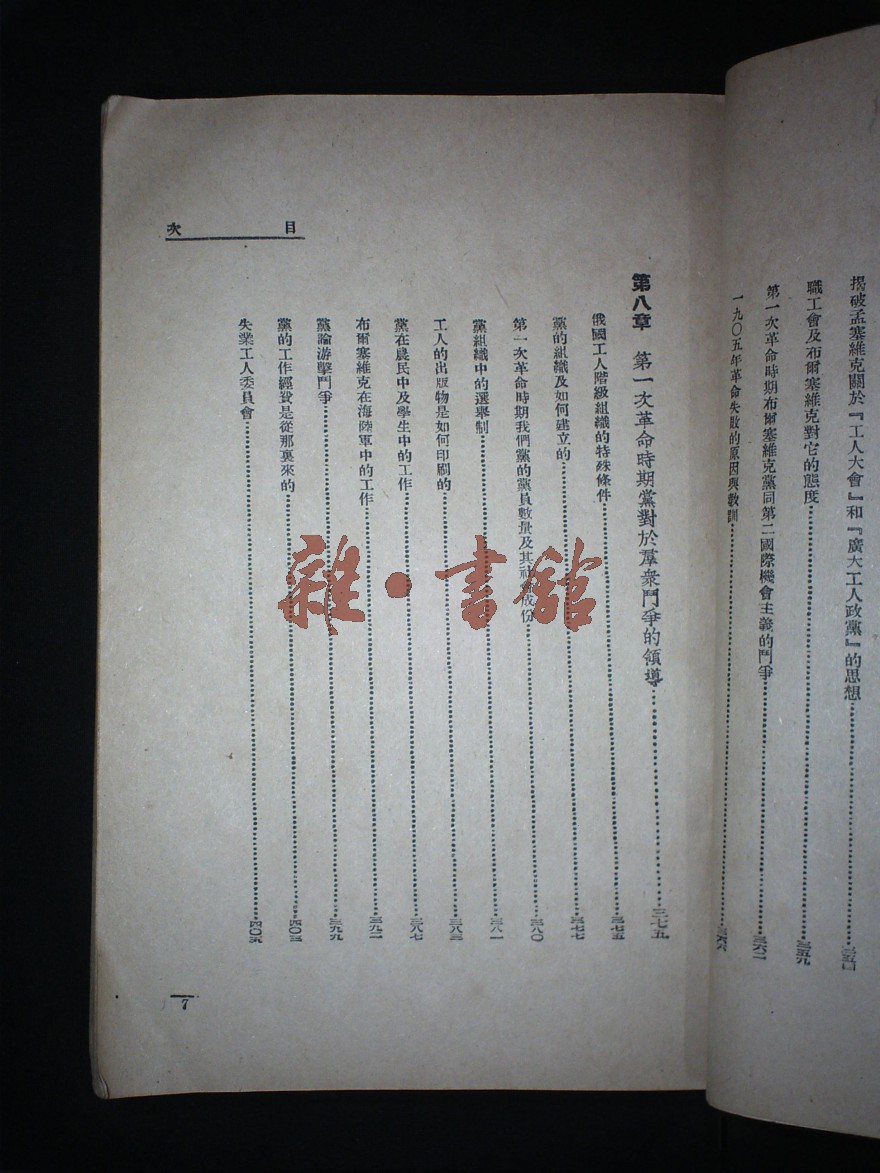 揭破孟塞維克關於『工人大會』和『廣大工人政黨』的思想……三五四
職工會及布爾塞維克對它的態度……三五九
第一次革命時期布爾塞維克黨同第二國際機會主義的鬥爭……三六二
一九〇五年革命失敗的原因與教訓……三六六
目 次
第八章 第一次革命時期黨對於羣衆鬥爭的領導……三七五
俄國工人階級組織的特殊條件……三七五
黨的組織及如何建立的……三七七
第一次革命時期我們黨的黨員數量及其社會成份……三八〇
黨組織中的選舉制……三八一
工人的出版物是如何印刷的……三八三
黨在農民中及學生中的工作……三八七
布爾塞維克在海陸軍中的工作……三九二
黨論游擊鬥爭……三九九
黨的工作經費是從那裏來的……四〇三
失業工人委員會……四〇五
7
雜·書館